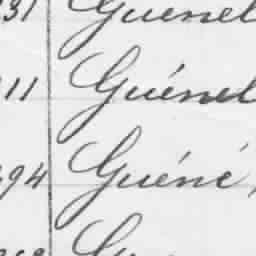 31 Guenel
11 Guénel
94 Guéné